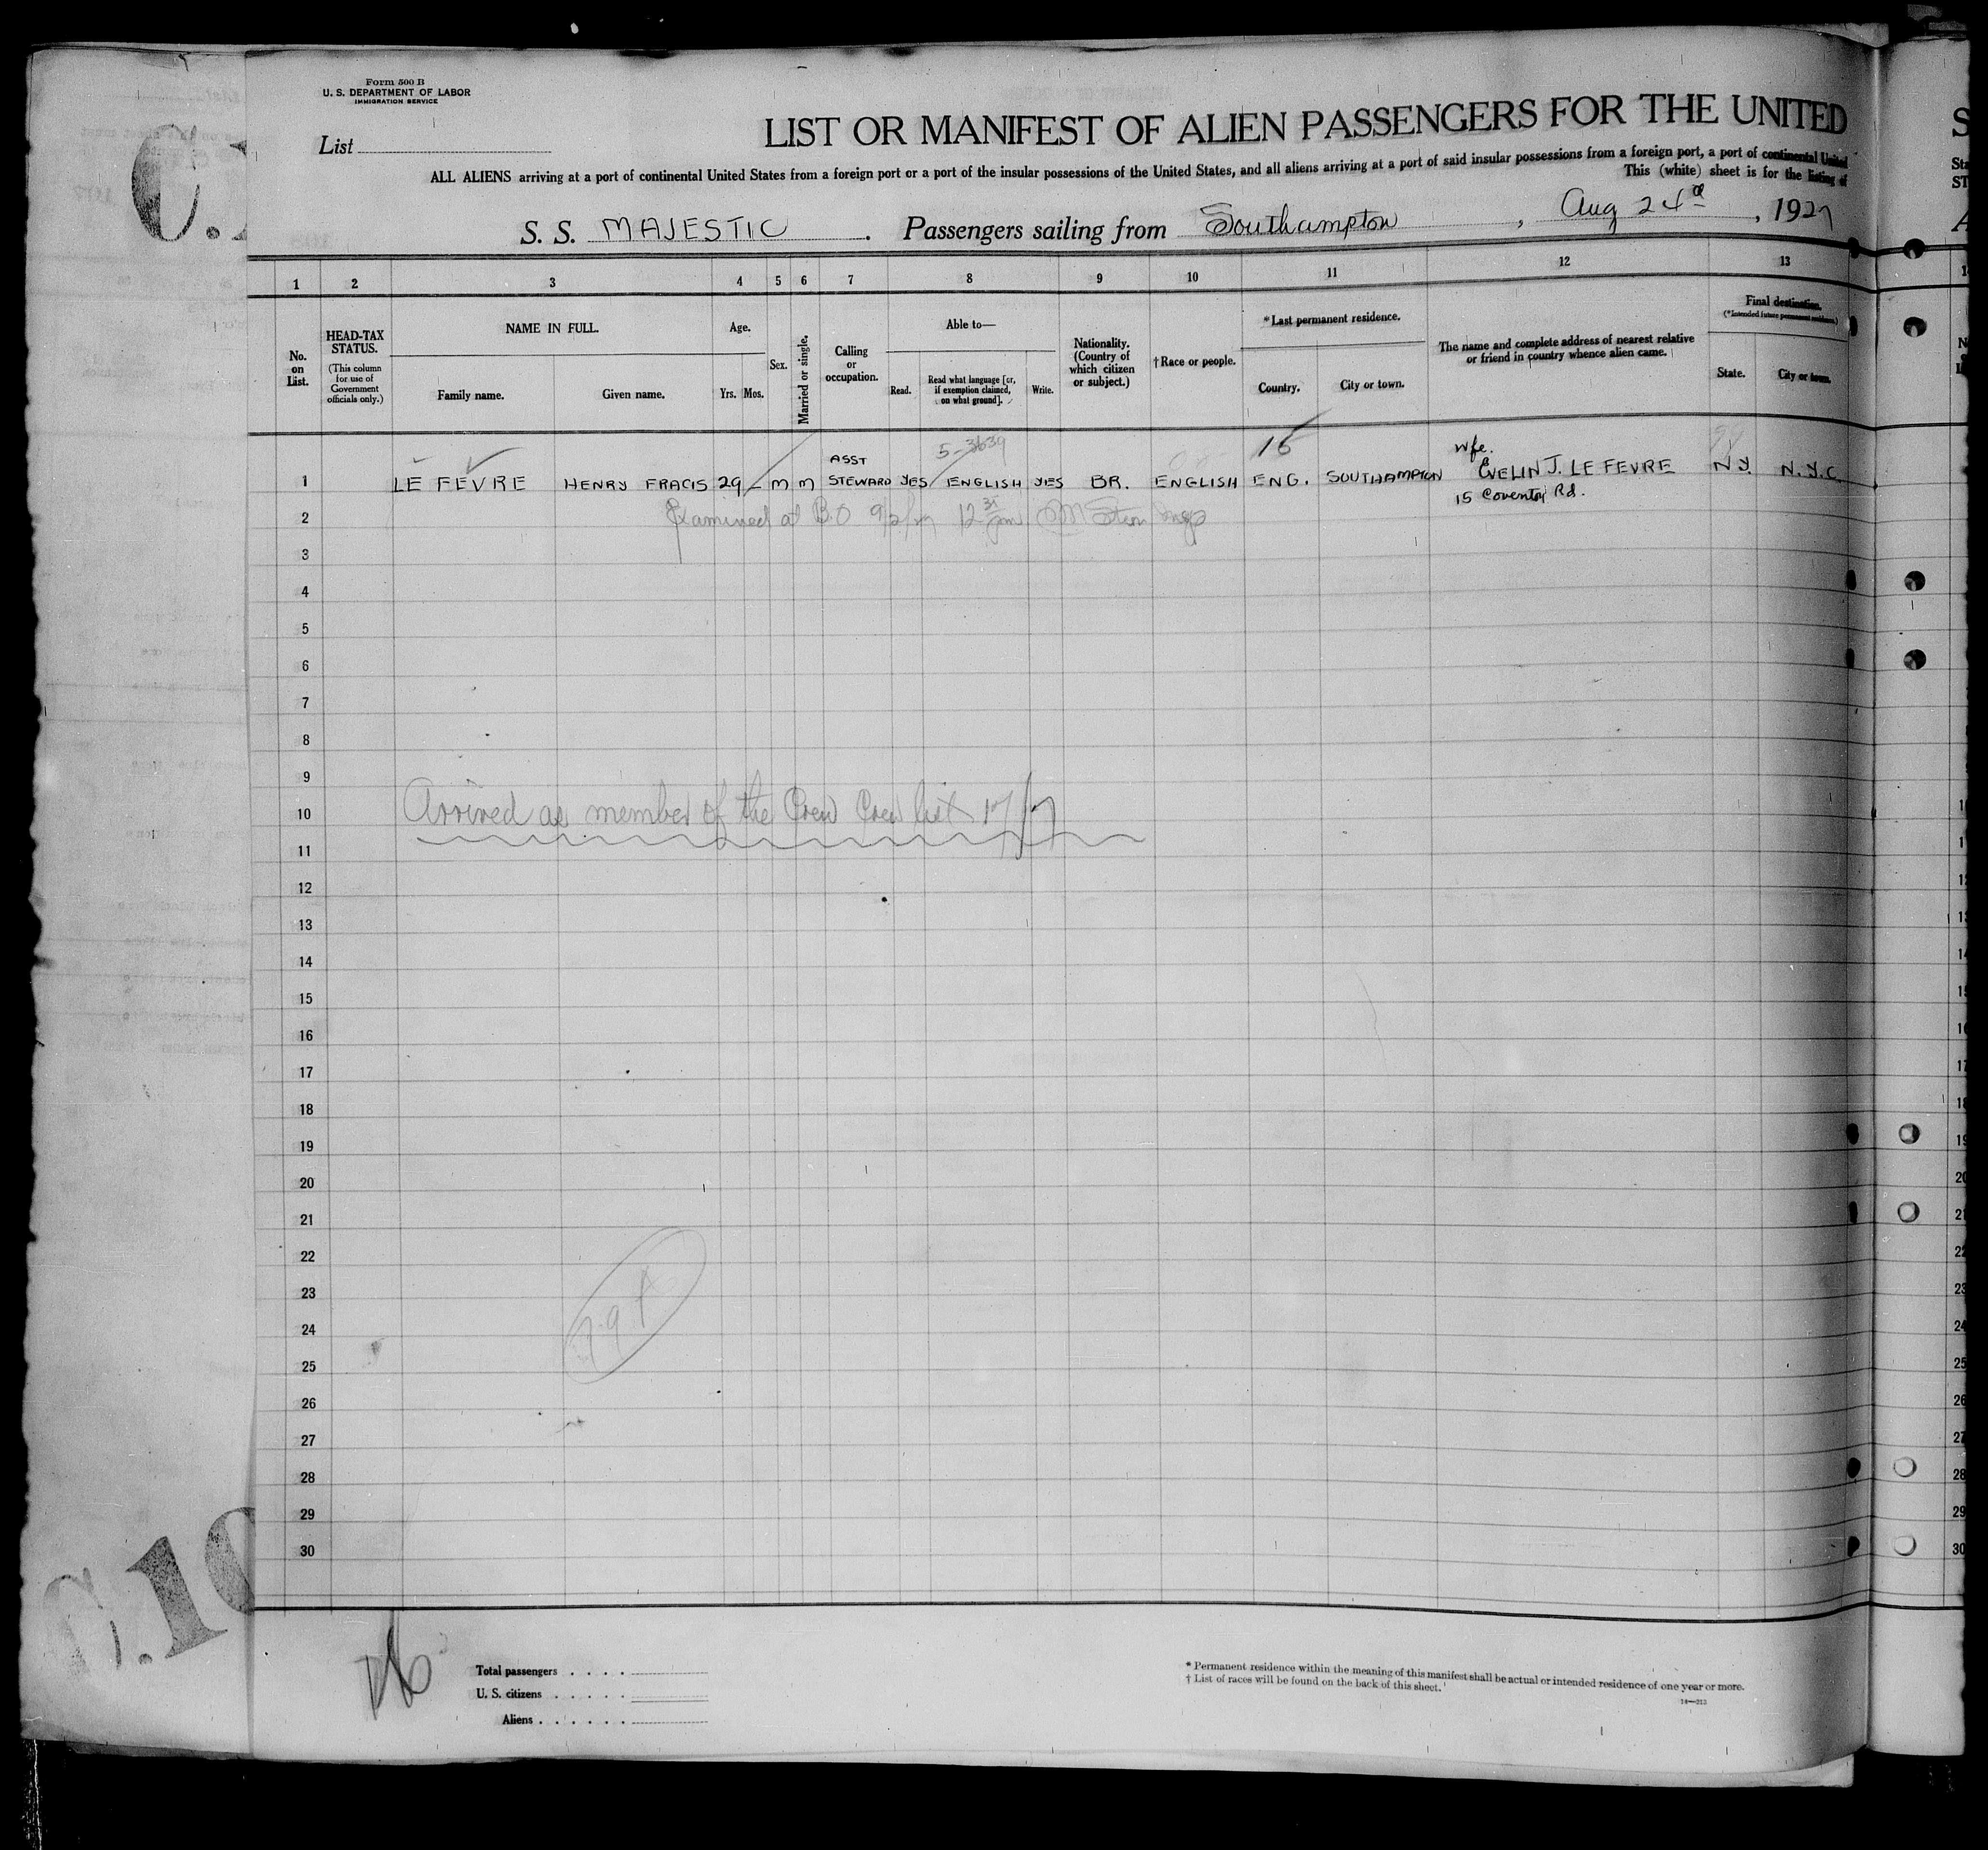 Form 500 B
U. S. DEPARTMENT OF LABOR
IMMIGRATION SERVICE
List
LIST OR MANIFEST OF ALIEN PASSENGERS FOR THE UNITED
ALL ALIENS arriving at a port of continental United States from a foreign port or a port of the insular possessions of the United States, and all aliens arriving at a port of said insular possessions from a foreign port, a port of continental United
This (white) sheet is for the listing of
S. S. MAJESTIC . Passengers sailing from Southampton , Aug 24 , 1927
1 2 3 4 5 6 7 8 9 10 11 12 13
No. on List.
HEAD-TAX STATUS.
(This column for use of Government officials only.)
NAME IN FULL.
Family name. Given name.
Age.
Yrs. Mos.
Sex.
Married or single.
Calling or occupation.
Able to—
Read. Read what language [or, if exemption claimed, on what ground]. Write.
Nationality. (Country of which citizen or subject.)
†Race or people.
*Last permanent residence.
Country. City or town.
The name and complete address of nearest relative or friend in country whence alien came.
Final destination.
(*Intended future permanent residence.)
State. City or town.
5-3639 15
1 LE FEVRE HENRY FRACIS 29 - M M ASST STEWARD YES ENGLISH YES BR. ENGLISH ENG. SOUTHAMPTON wfe. EVELIN J. LE FEVRE N.Y. N.Y.C.
15 Coventry Rd.
2 Examined at B.O
3
4
5
6
7
8
9
10 Arrived as member of the Crew Crew list
11
12
13
14
15
16
17
18
19
20
21
22
23
24
25
26
27
28
29
30
Total passengers
U. S. citizens
Aliens
* Permanent residence within the meaning of this manifest shall be actual or intended residence of one year or more.
† List of races will be found on the back of this sheet.
14—213